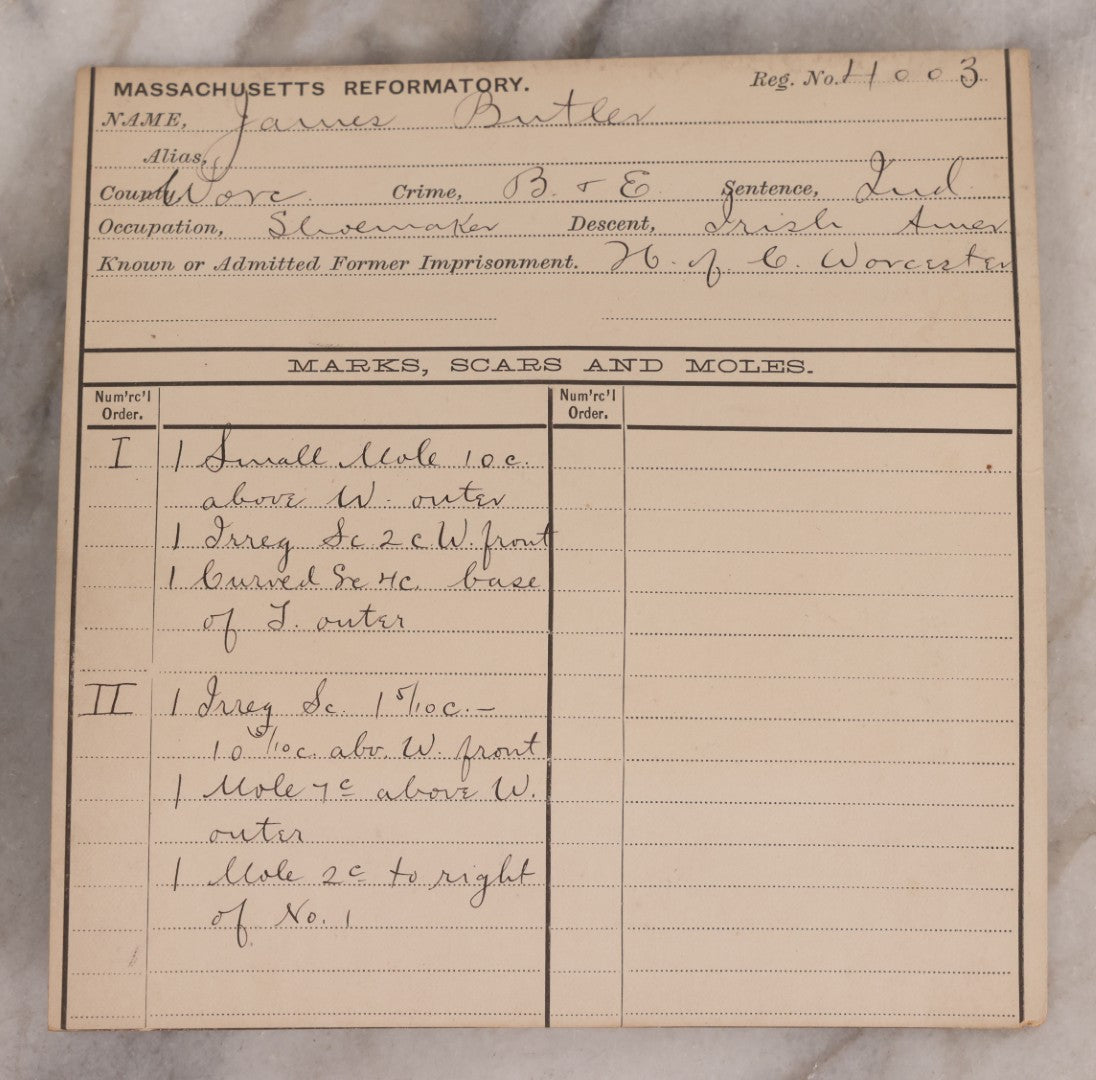 MASSACHUSETTS REFORMATORY. Reg. No. 4003
NAME, James Butler
Alias,
County, Worc. Crime, B. & E. Sentence, Ind.
Occupation, Shoemaker Descent, Irish Amer
Known or Admitted Former Imprisonment. H. of C. Worcester
MARKS, SCARS AND MOLES.
Num'rc'l Order. Num'rc'l Order.
I 1 Small Mole 10 c.
above W. outer
1 Irreg Sc 2 c W. front
1 Curved Sc 4c. base
of T. outer
II 1 Irreg Sc. 1 5/10 c. –
10 5/10 c. abv. W. front
1 Mole 7 c above W.
outer
1 Mole 2 c to right
of No. 1